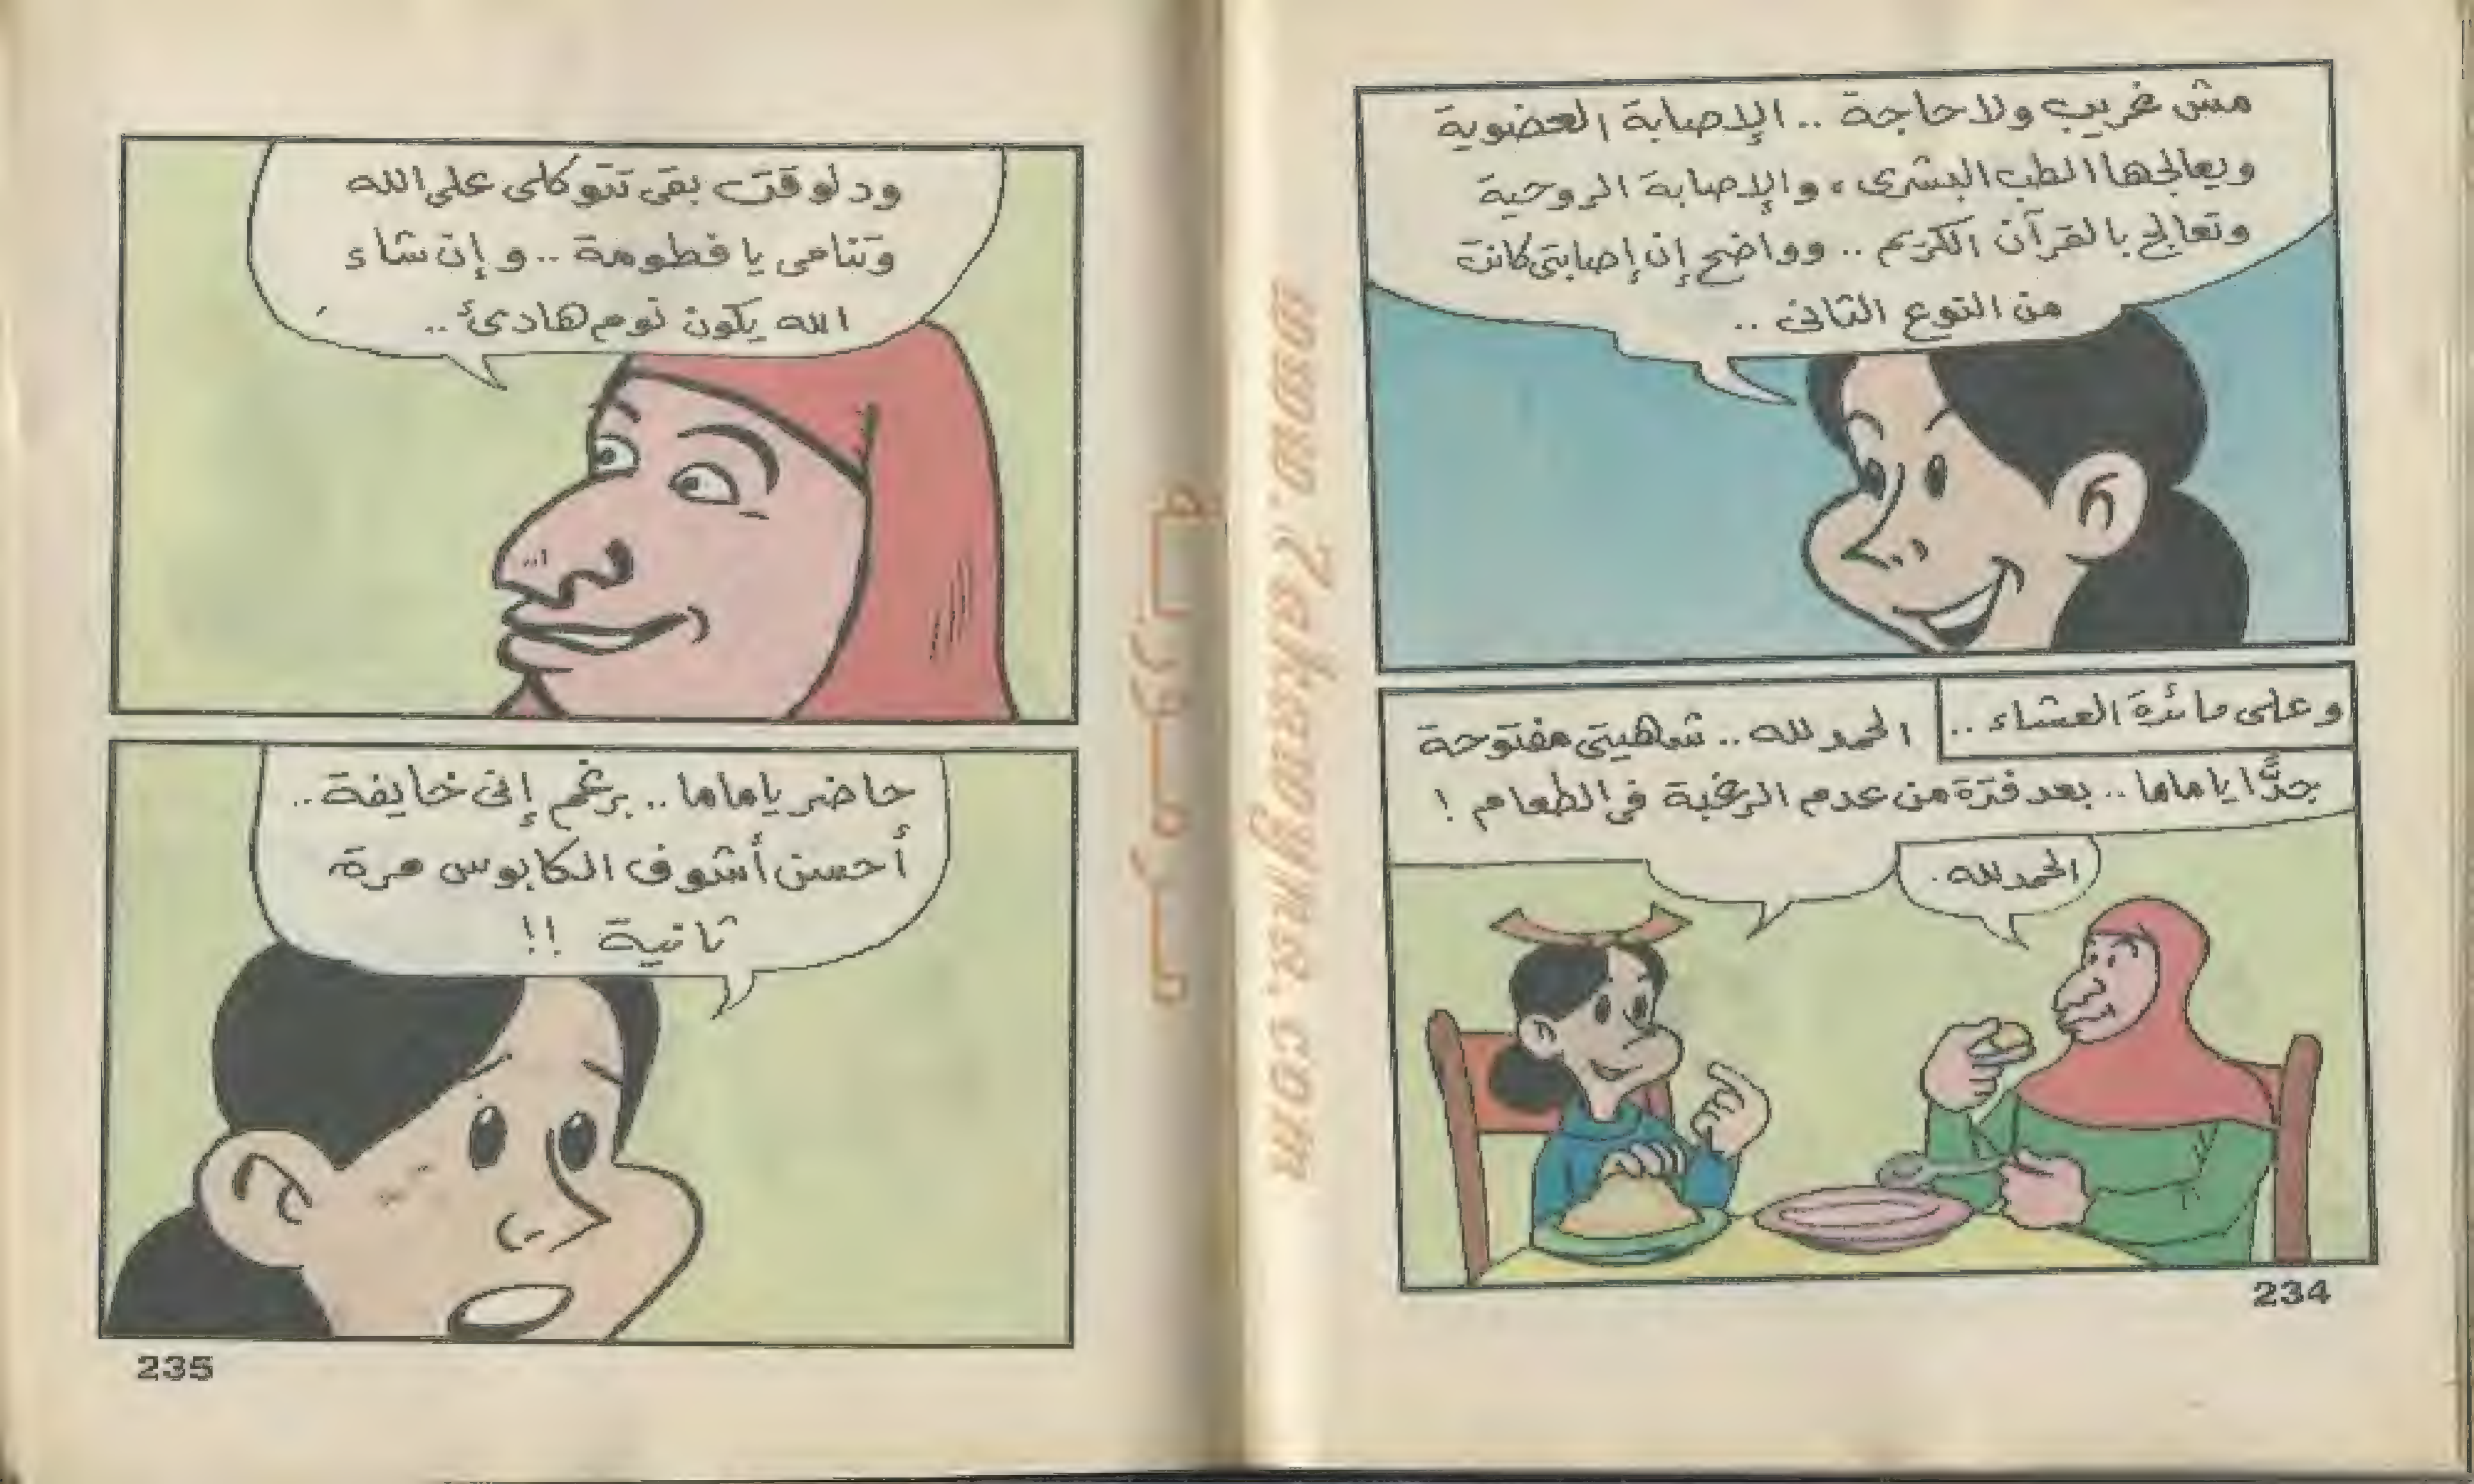 مش غريب ولا حاجة .. الإصابة العضوية
ويعالجها الطب البشرى ، والإصابة الروحية
وتعالج بالقرآن الكريم .. وواضح إن إصابتى كانت
من النوع الثانى ..
وعلى مائدة العشاء ..
الحمد لله .. شهيتى مفتوحة
جدًّا يا ماما .. بعد فترة من عدم الرغبة فى الطعام !
الحمد لله .
234
ودلوقت بقى تتوكلى على الله
وتنامى يا فطومة .. وإن شاء
الله يكون نوم هادئ ..
حاضر يا ماما .. برغم إنى خايفة ..
أحسن أشوف الكابوس مرة
ثانية !!
235